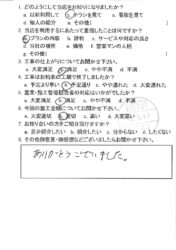 1. どのようにして当店をお知りになりましたか？
a. 以前利用して b. チラシを見て c. 看板を見て
d. 知人の紹介 e. その他（ ）
2. 当店を利用するにあたって重視したことは何ですか？
a. プランの内容 b. 評判 c. サービスや対応の良さ
d. 当社の場所 e. 価格 f. 営業マンの人柄
g. その他（ ）
3. 工事の仕上がりについてお聞かせ下さい。
a. 大変満足 b. 満足 c. やや不満 d. 不満
4. 工事はお約束の工期で終了しましたか？
a. 予定より早い b. 予定通り c. やや遅れた d. 大変遅れた
5. 営業・施工管理担当者の対応はいかがでしたか？
a. 大変満足 b. 満足 c. やや不満 d. 不満
6. 今回の施工金額についてお聞かせ下さい。
a. 大変満足 b. 適切 c. 高い d. 大変高い
7. お知り合いの方をご紹介頂けますか？
a. 是非紹介したい b. 紹介したい c. 分からない d. したくない
8. その他御意見・御感想などございましたらお聞かせ下さい。
ありがとうございました。